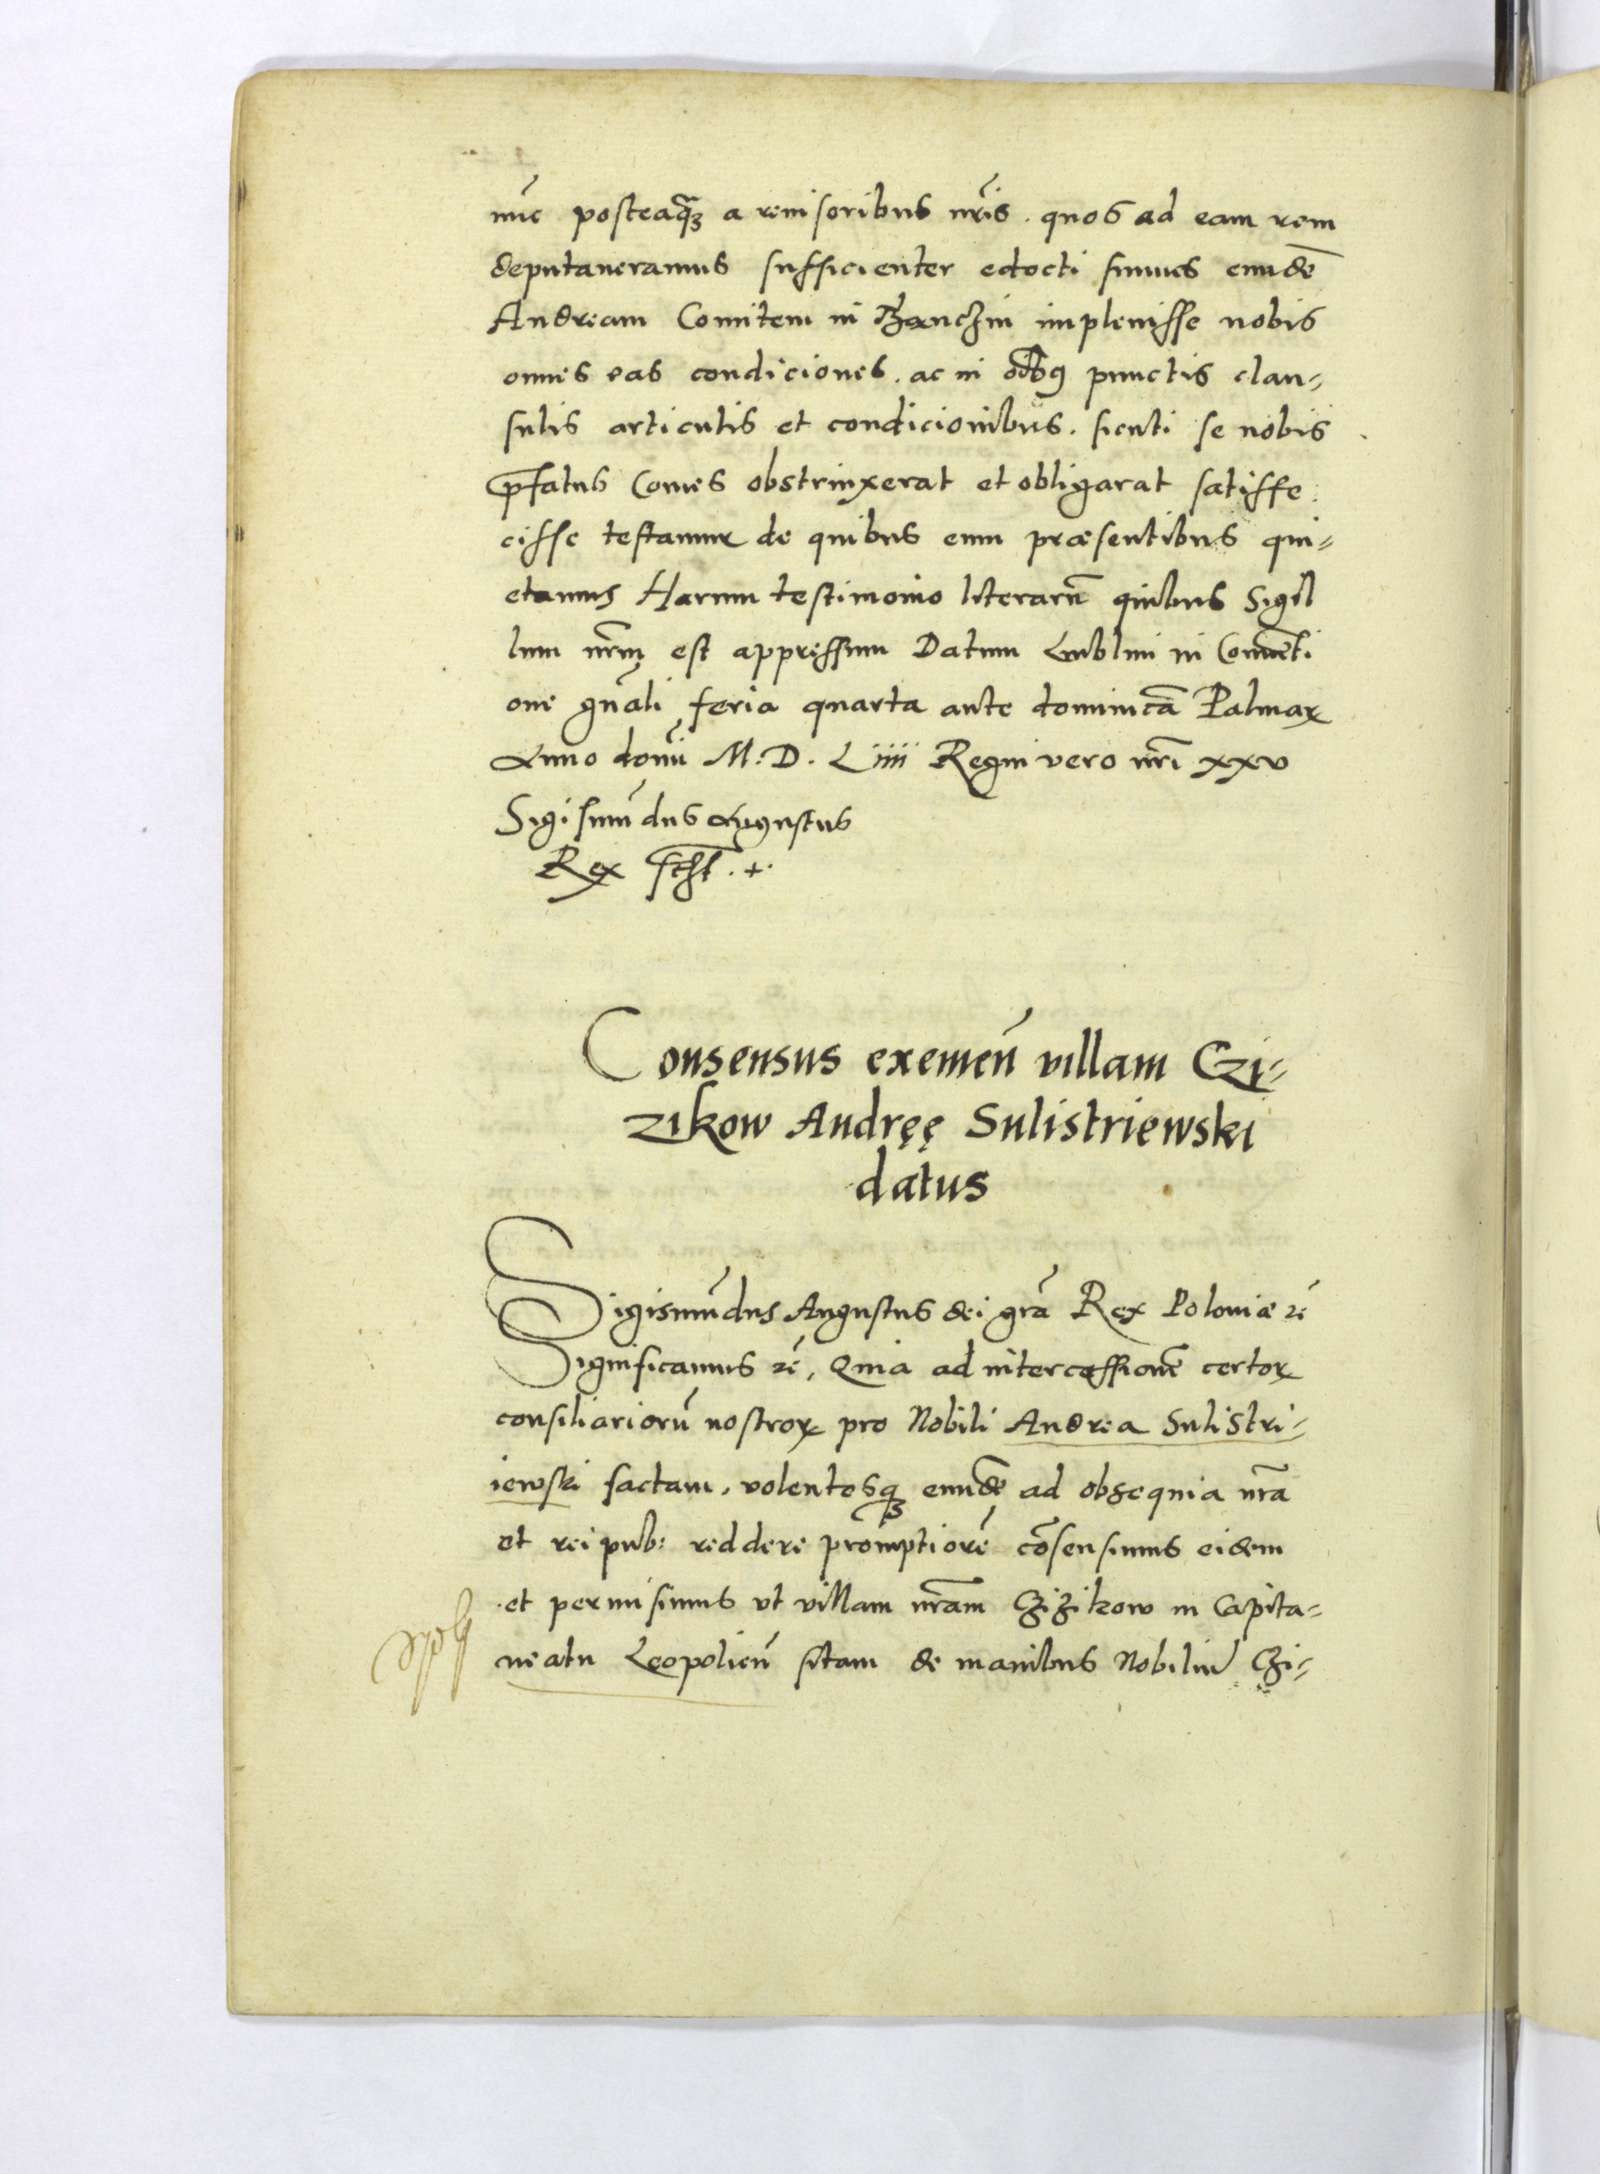 nūc posteaq̄ꝫ a revisoribus nr̄is. quos ad eam rem
deputaveramus sufficienter edocti sumus eundē
Andream Comitem in Thanczin implevisse nobis
omnes eas condiciones. ac in oībꝰ punctis clau-
sulis articulis et condicionibus. sicuti se nobis
p̄fatus Comes obstrinxerat et obligarat satisfe
cisse testamur de quibus eum præsentibus qui-
etamus Harum testimonio literarū quibus Sigil
lum nr̄m est appressum Datum Lublini in Conventi
one gn̄ali feria quarta ante dominicā Palmaꝝ
Anno domī M.D. Liiii Regni vero nr̄i xxv
Sigismūdus Augustus
Rex
Consensus exemen̄ villam Czi-
zikow Andręę Sulistriewski
datus
Sigismūdus Augustus dei grā Rex Poloniæ ꝛc̄
Significamus ꝛc̄, Quia ad intercessionē certoꝝ
consiliariorū nostroꝝ pro Nobili Andrea Sulistri-
iewski factam, volentesqꝫ eundē ad obsequia nr̄a
et reipub: reddere promptiorē cōsensimus eidem
et permisimus ut villam nr̄am Czizikow in Capita-
neatu Leopolien̄ sitam de manibus Nobiliū Czi-